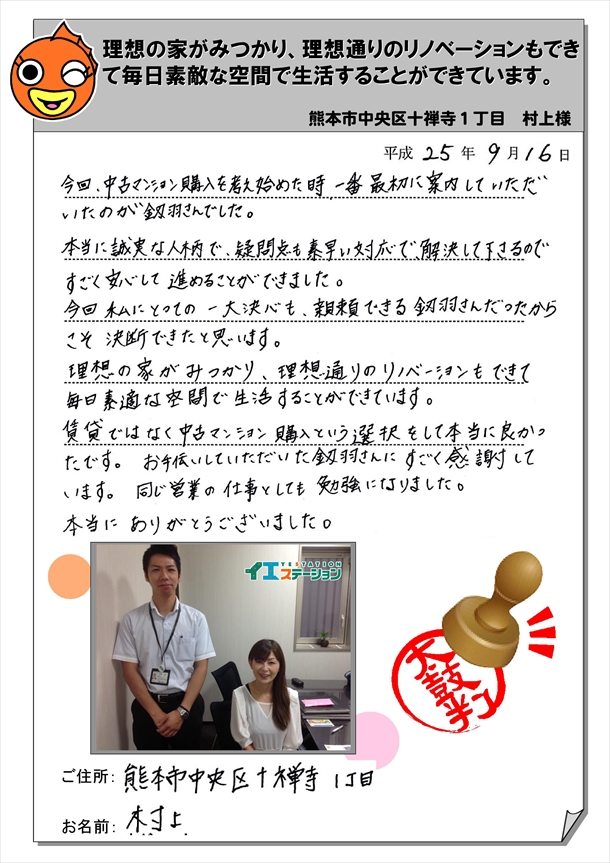 理想の家がみつかり、理想通りのリノベーションもでき
て毎日素敵な空間で生活することができています。
熊本市中央区十禅寺1丁目 村上様
平成 25 年 9 月 16 日
今回、中古マンション購入を考え始めた時、一番最初に案内していただ
いたのが釼羽さんでした。
本当に誠実な人柄で、疑問点も素早い対応で、解決して下さるので
すごく安心して進めることができました。
今回私にとっての一大決心も、親頼できる釼羽さんだったから
こそ決断できたと思います。
理想の家がみつかり、理想通りのリノベーションもできて
毎日素適な空間で生活することができています。
賃貸ではなく中古マンション購入という選択をして本当に良かっ
たです。 お手伝いしていただいた釼羽さんにすごく感謝して
います。 同じ営業の仕事としても勉強になりました。
本当にありがとうございました。
イエステーション
YESTATION
太鼓判
ご住所: 熊本市中央区十禅寺 1丁目
お名前: 村上